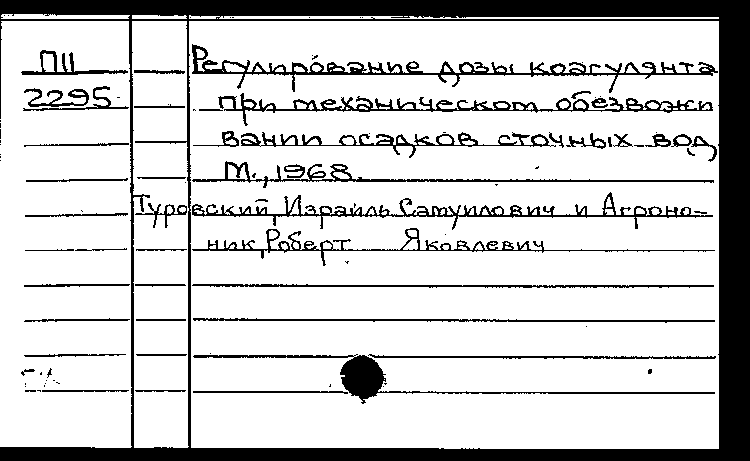 П11
2295
Регулирование дозы коагулянта
при механическом обезвожи
вании осадков сточных вод,
М., 1968.
Туровский, Израиль Самуилович и Агроно-
ник, Роберт Яковлевич